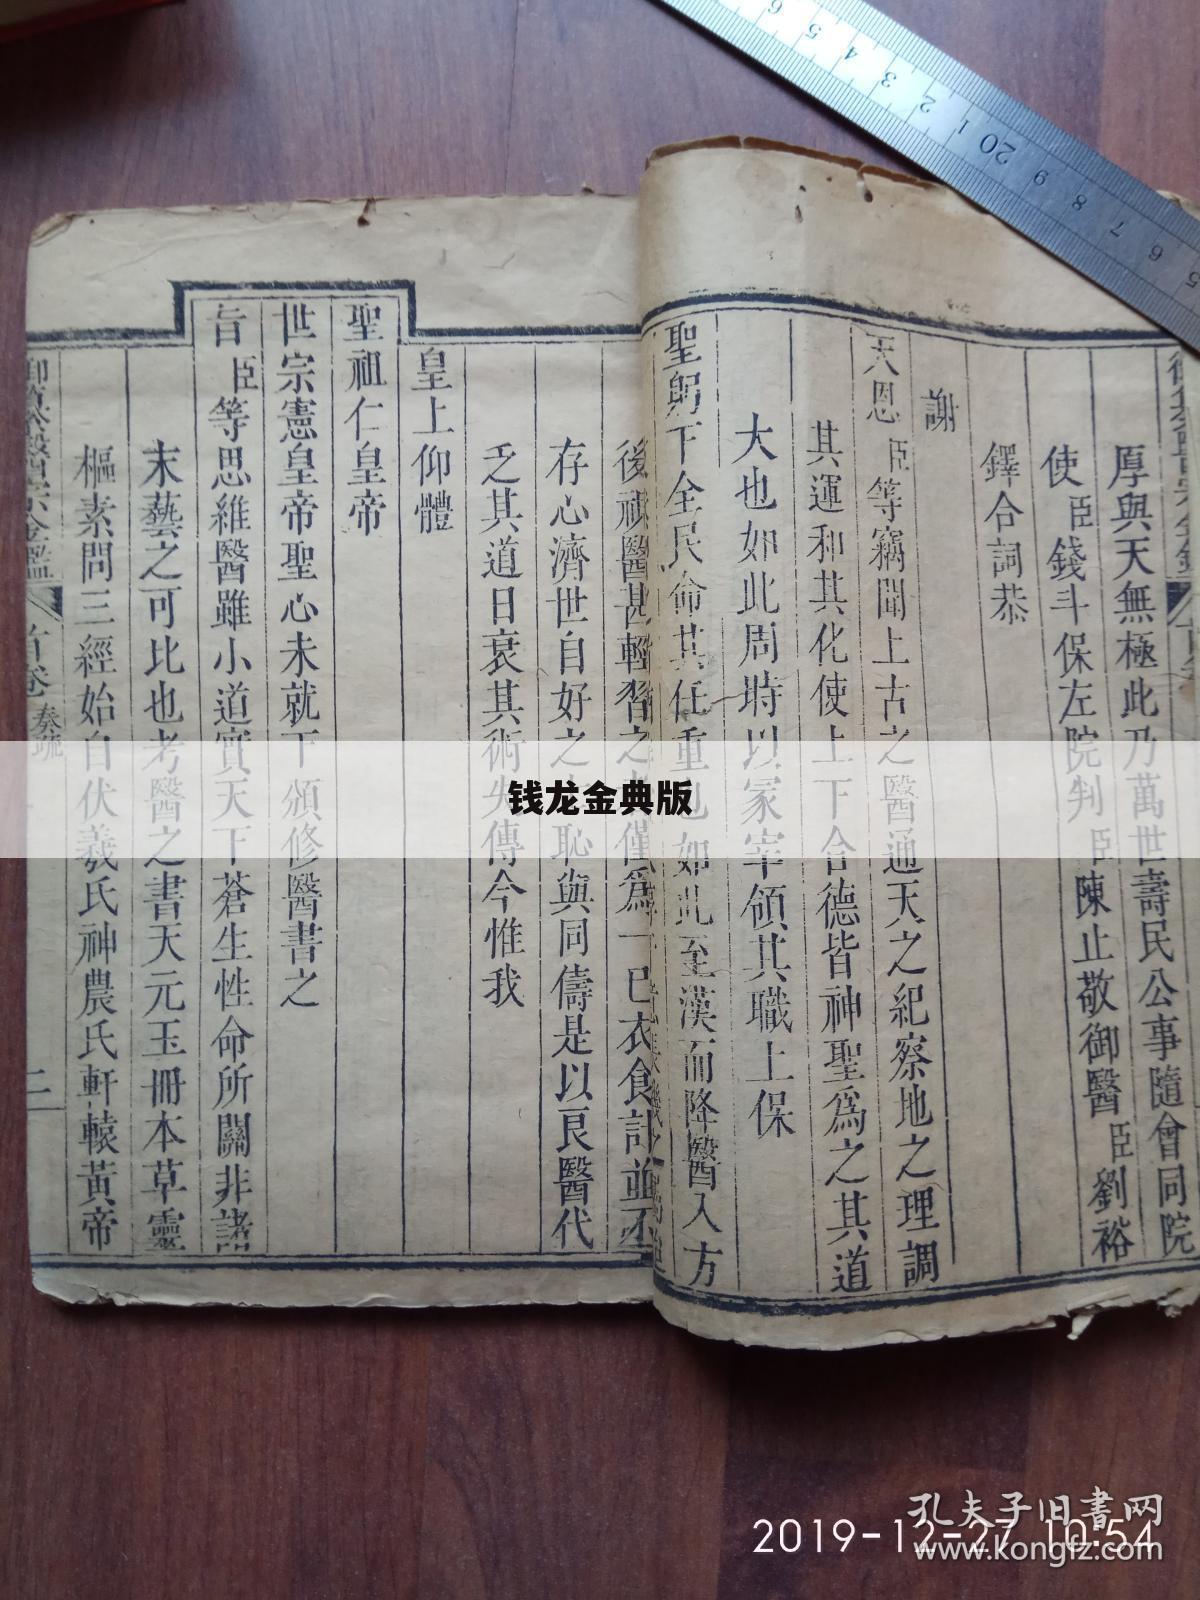 厚與天無極此乃萬世壽民公事隨會同院
使臣錢斗保左院判臣陳止敬御醫臣劉裕
鐸合詞恭
謝
天恩臣等竊聞上古之醫通天之紀察地之理調
其運和其化使上下合德皆神聖為之其道
大也如此周時以冢宰領其職上保
聖躬下全民命其任重也如此至漢而降醫入方
後視醫甚輕習之者僅為一已衣食計並不
存心濟世自好之士恥與同儔是以良醫代
乏其道日衰其術失傳今惟我
皇上仰體
聖祖仁皇帝
世宗憲皇帝聖心未就下頒修醫書之
旨臣等思維醫雖小道實天下蒼生性命所關非諸
末藝之可比也考醫之書天元玉冊本草靈
樞素問三經始自伏羲氏神農氏軒轅黃帝
御纂醫宗金鑑 首卷 奏疏 二
钱龙金典版
6 5 4 3 2 1 20 9 8 7 6 5
孔夫子旧書网
www.kongfz.com
2019-12-27 10:54